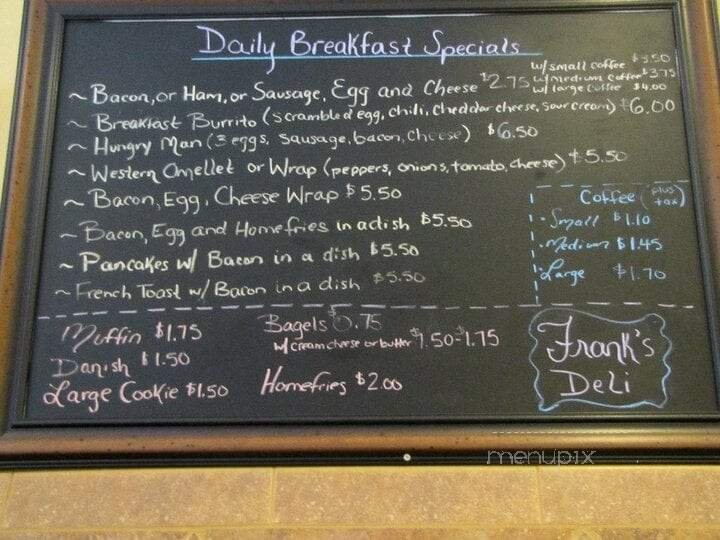 Daily Breakfast Specials
~ Bacon, or Ham, or Sausage, Egg and Cheese $2.75
w/ small coffee $3.50
w/ medium coffee $3.75
w/ large coffee $4.00
~ Breakfast Burrito (scrambled egg, chili, cheddar cheese, sour cream) $6.00
~ Hungry Man (3 eggs, sausage, bacon, cheese) $6.50
~ Western Omellet or Wrap (peppers, onions, tomato, cheese) $5.50
~ Bacon, Egg, Cheese Wrap $5.50
~ Bacon, Egg and Homefries in a dish $5.50
~ Pancakes w/ Bacon in a dish $5.50
~ French Toast w/ Bacon in a dish $5.50
Coffee (plus tax)
· Small $1.10
· Medium $1.45
· Large $1.70
Muffin $1.75
Danish $1.50
Large Cookie $1.50
Bagels $0.75
w/ cream cheese or butter $1.50-$1.75
Homefries $2.00
Frank's
Deli
menupix